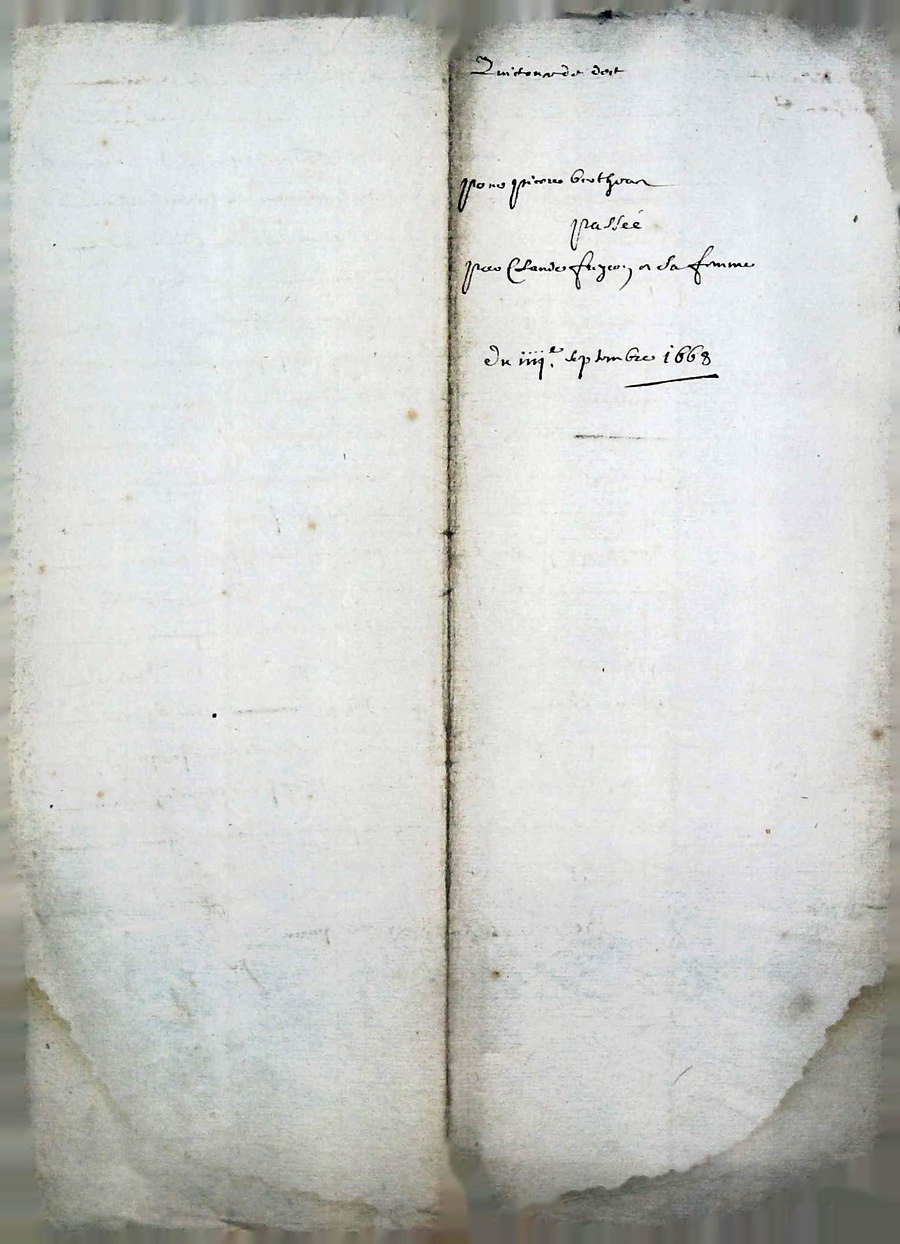 Quictance de dot
pour pierre berthon
passée
par Claude et sa femme
du iiii.e septembre 1668